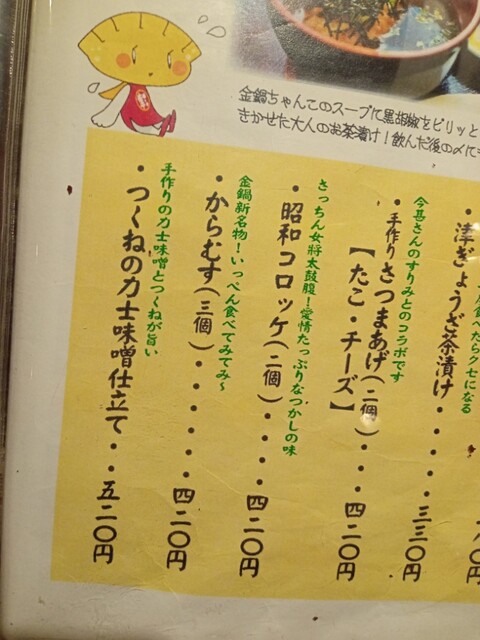 金鍋ちゃんこのスープに黒胡椒をピリッと
きかせた大人のお茶漬け!飲んだ後の〆に
食べたらクセになる
・津ぎょうざ茶漬け・・・・三三〇円
今甚さんのすりみとのコラボです
・手作りさつまあげ(二個)・・・四二〇円
【たこ・チーズ】
さっちん女將太鼓腹!愛情たっぷりなつかしの味
・昭和コロッケ(二個)・・・・四二〇円
金鍋新名物!いっぺん食べてみてみ〜
・からむす(三個)・・・・・四二〇円
手作りの力士味噌とつくねが旨い
・つくねの力士味噌仕立て・・五二〇円